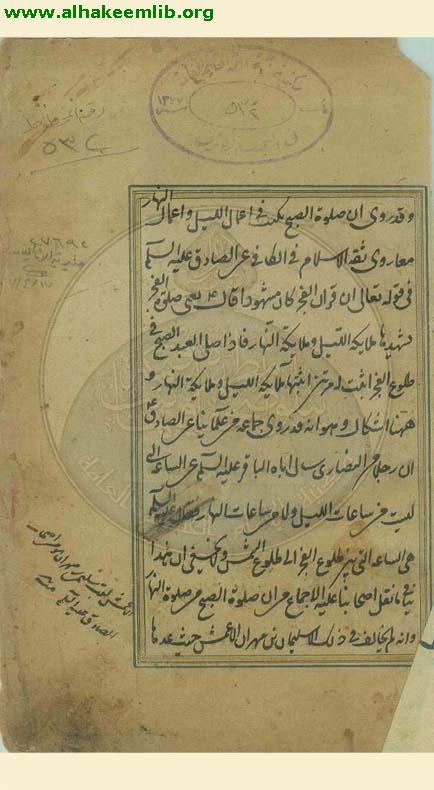 www.alhakeemlib.org
١٣٧٧
٥٣٢
٥٣٢
وقد روى ان صلوة الصبح تكتب في اعمال الليل واعمال النهار
معا روى ثقة الاسلام في الكافي عن الصادق عليه السلم
في قوله تعالى ان قران الفجر كان مشهودا قال يعني صلوة الفجر
تشهدها ملايكة الليل وملايكة النهار فاذا صلى العبد الصبح مع
طلوع الفجر اثبت له مرتين اثبتها ملايكة الليل وملايكة النهار و
ههنا اشكال وهو انه قد روى جماعة من علمائنا عن الصادق ع
ان رجلا من النصارى سال اباه الباقر عليه السلم عن الساعة التي
ليست من ساعات الليل ولا من ساعات النهار فقال عليه السلم
هي الساعة التي بين طلوع الفجر الى طلوع الشمس ولا يخفى ان هذا
ينافي ما نقل اصحابنا عليه الاجماع من ان صلوة الصبح من صلوة النهار
وانه لم يخالف في ذلك الا سليمان بن مهران الاعمش حيث عدها
الصادق عليه السلم